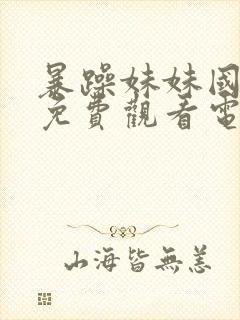 暴躁妹妹國
免費觀看電
山海皆無恙